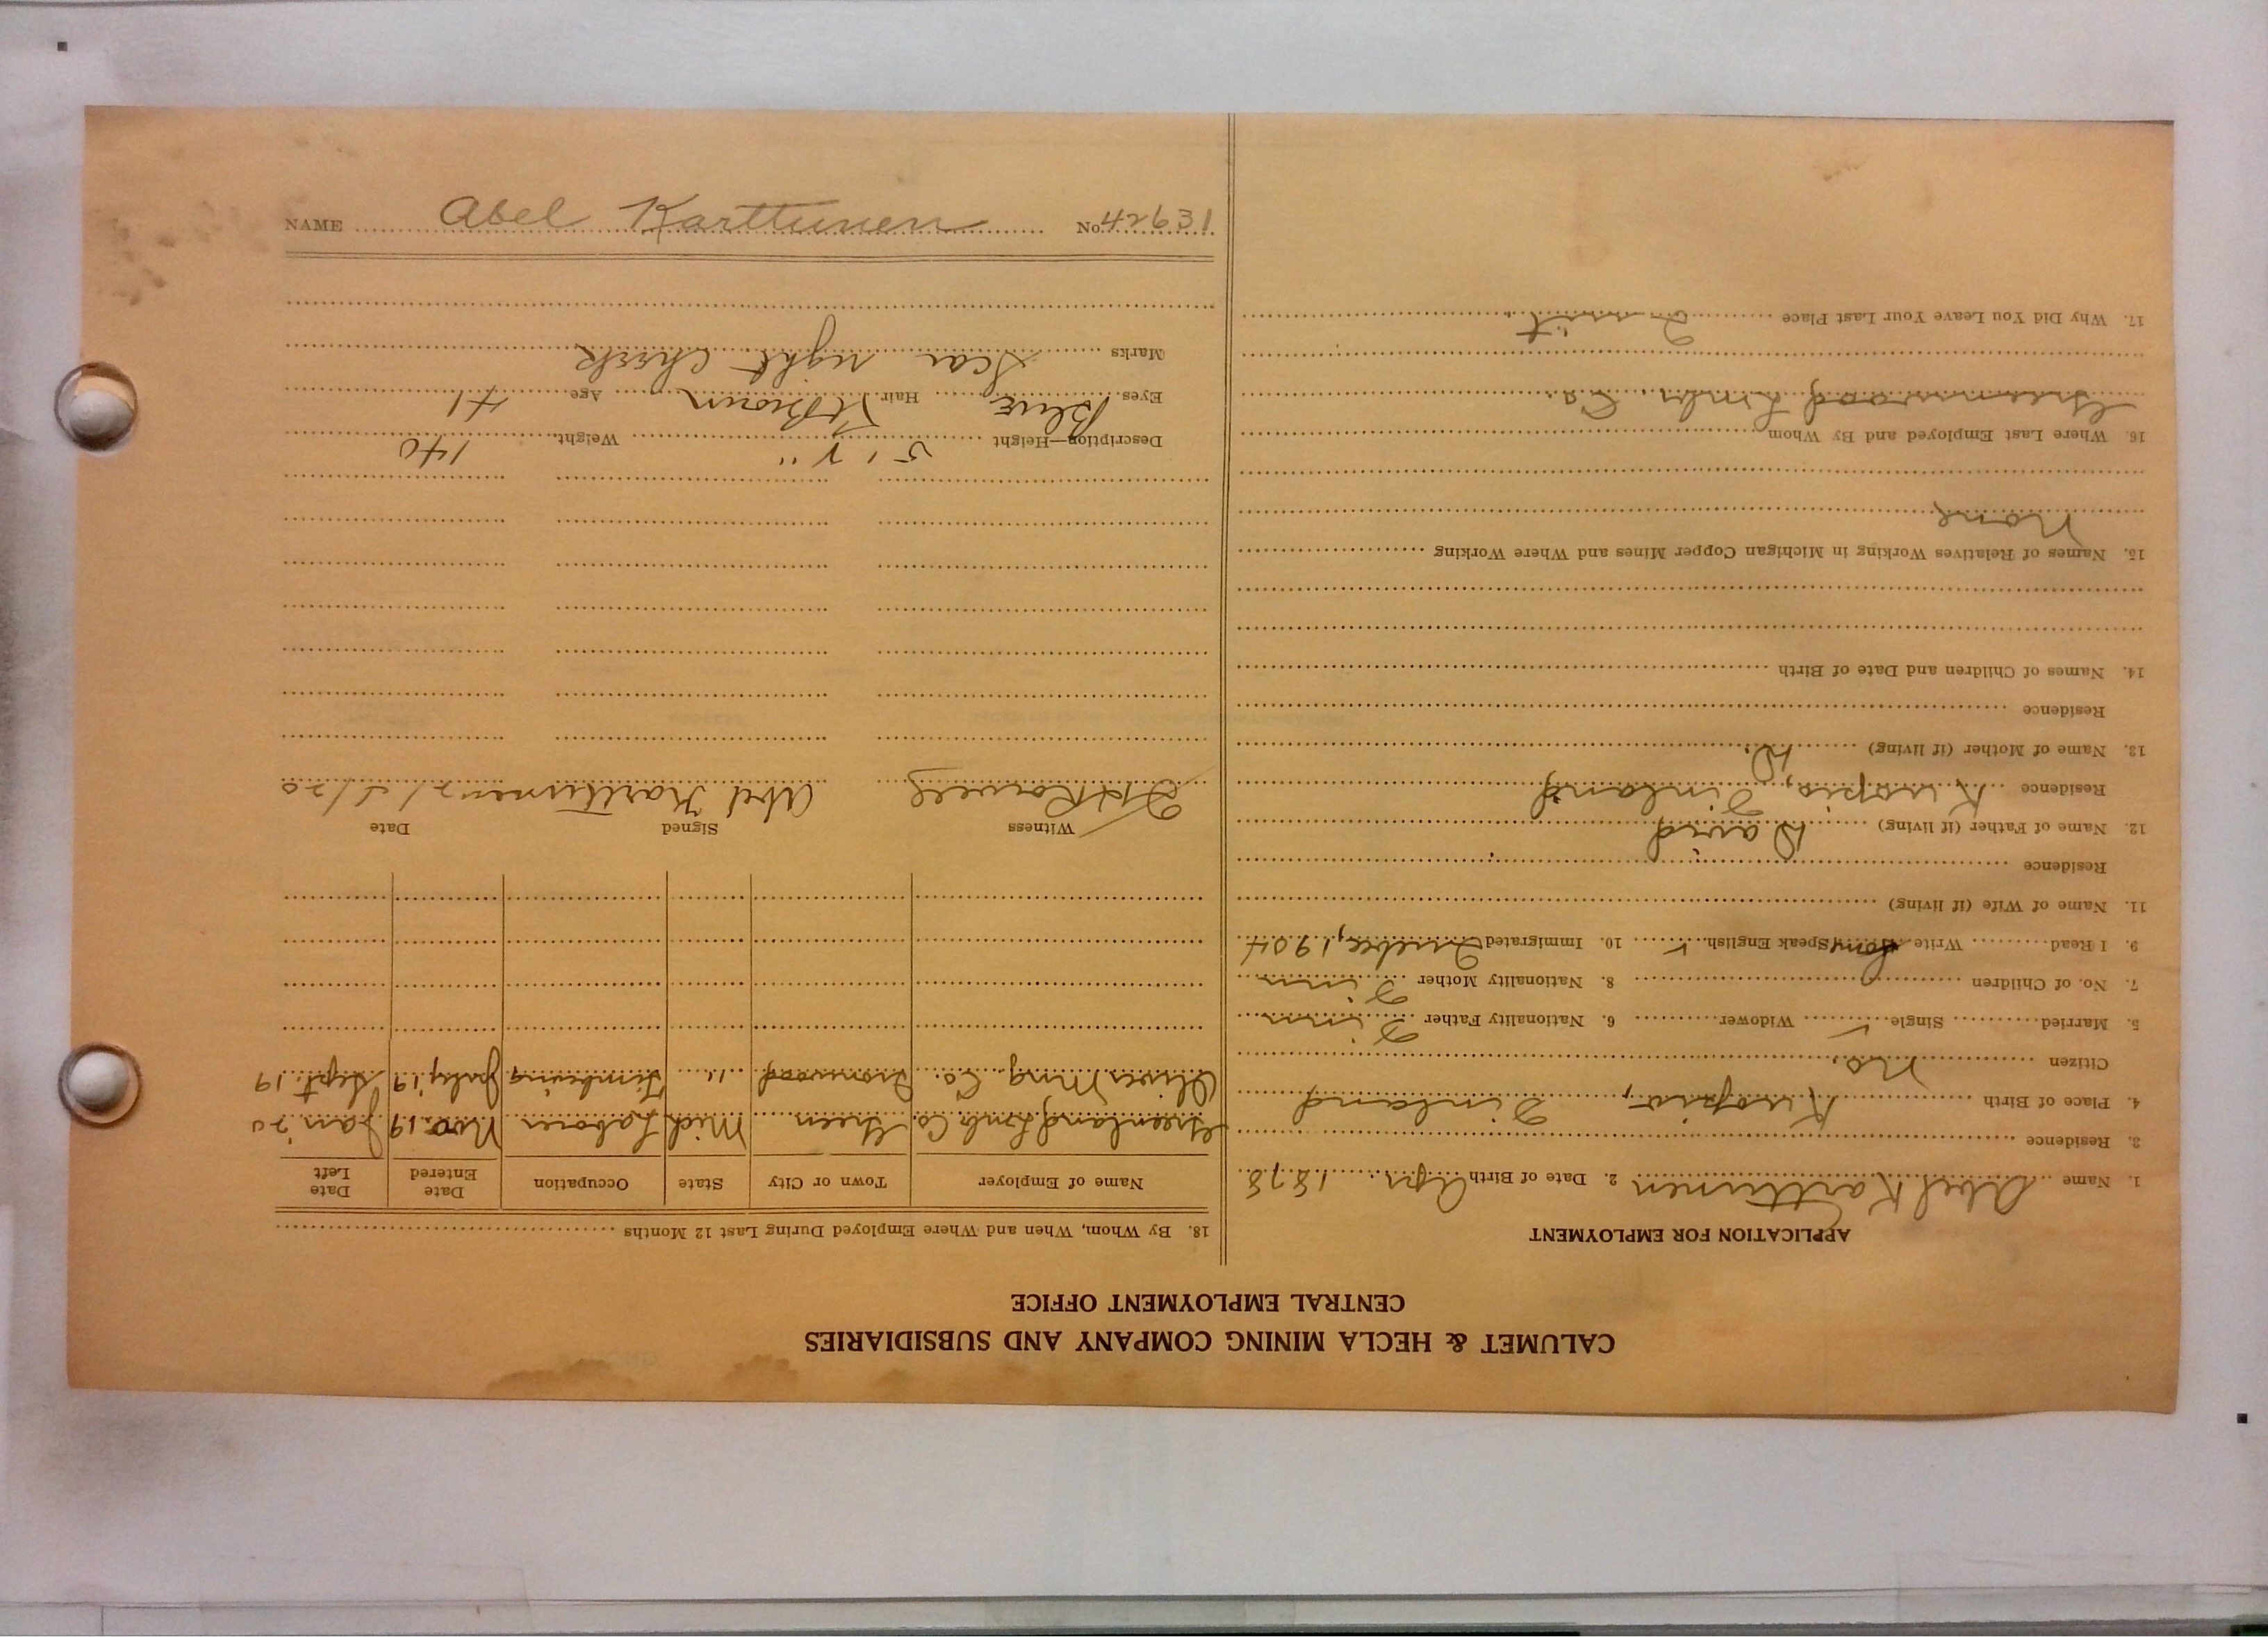 CALUMET & HECLA MINING COMPANY AND SUBSIDIARIES
CENTRAL EMPLOYMENT OFFICE
APPLICATION FOR EMPLOYMENT
1. Name Abel Karttunen 2. Date of Birth Apr. 1878
3. Residence
4. Place of Birth Kuopio, Finland
Citizen No.
5. Married Single ✓ Widower 6. Nationality Father Finn
7. No. of Children 8. Nationality Mother Finn
9. I Read Write Speak English 10. Immigrated Quebec, 1904
11. Name of Wife (if living)
Residence
12. Name of Father (if living) David
Residence Kuopio, Finland
13. Name of Mother (if living) D.
Residence
14. Names of Children and Date of Birth
15. Names of Relatives Working in Michigan Copper Mines and Where Working
None
16. Where Last Employed and By Whom
Greenwood Lmbr. Co.
17. Why Did You Leave Your Last Place Quit
18. By Whom, When and Where Employed During Last 12 Months
Name of Employer Town or City State Occupation Date Entered Date Left
Greenland Lmbr Co Green Mich Laborer Nov. 19 Jan '20
Oliver Mng. Co. Ironwood " Timbering July 19 Sept. 19
Witness Signed Date
Abel Karttunen
Description—Height 5' 8" Weight 140
Eyes Blue Hair Lt Brown Age 41
Marks Scar right cheek
NAME Abel Karttunen No. 42631